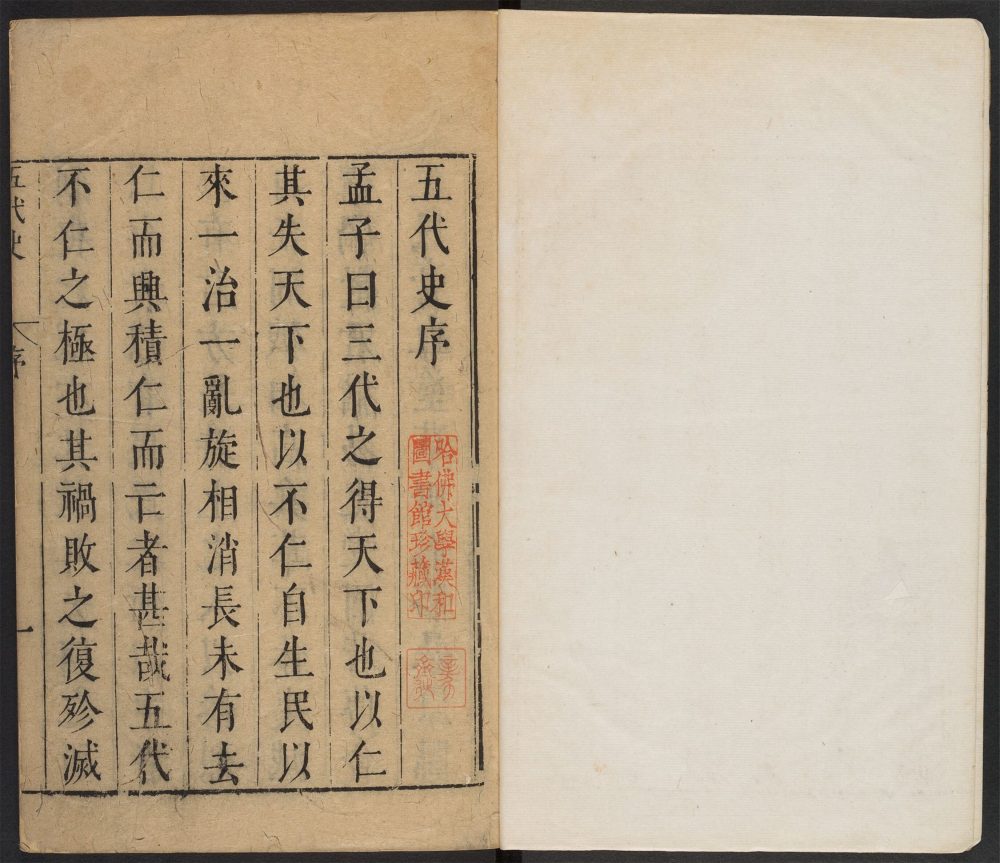 五代史序
孟子曰三代之得天下也以仁
其失天下也以不仁自生民以
來一治一亂旋相消長未有去
仁而興積仁而亡者甚哉五代
不仁之極也其禍敗之復殄滅
五代史
序
一
哈佛大學漢和
圖書館珍藏印